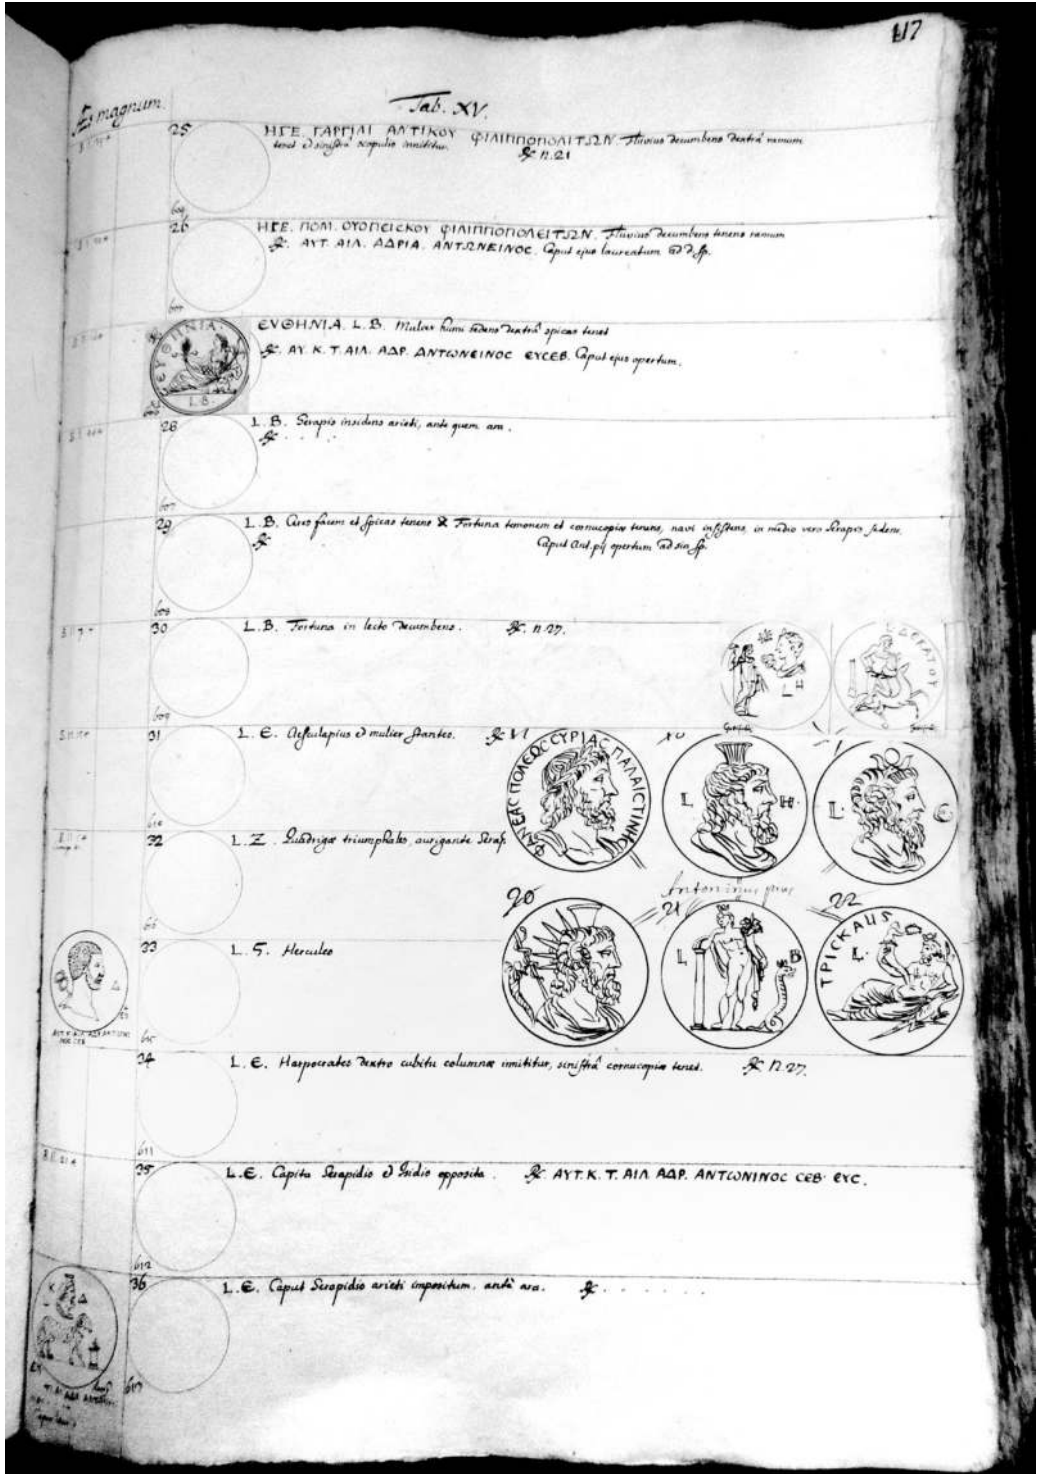 117
Æs magnum.
Tab. XV.
25
ΗΓΕ. ΓΑΡΓΙΛΙ ΑΝΤΙΚΟΥ ΦΙΛΙΠΠΟΠΟΛΙΤΩΝ. Fluvius decumbens dextrâ ramum
tenet et sinistrâ scopulo innititur. ℞ n. 21
26
ΗΓΕ. ΠΟΜ. ΟΥΟΠΕΙΣΚΟΥ ΦΙΛΙΠΠΟΠΟΛΕΙΤΩΝ. Fluvius decumbens tenens ramum
℞. ΑΥΤ. ΑΙΛ. ΑΔΡΙΑ. ΑΝΤΩΝΕΙΝΟC. Caput ejus laureatum
ΕΥΘΗΝΙΑ
L.B.
ЄΥΘΗΝΙΑ. L. B. Mulier humi sedens dextrâ spicas tenet
℞. ΑΥ. Κ. Τ. ΑΙΛ. ΑΔΡ. ΑΝΤΩΝЄΙΝΟC ЄΥCЄΒ. Caput ejus opertum.
28
L. B. Serapis insidens arieti, ante quem ara.
℞. . . .
607
29
L. B. Ceres facem et spicas tenens & Fortuna temonem et cornucopiæ tenens, navi insistens, in medio vero Serapis sedens.
℞ Caput Ant. pij opertum ad sin sp.
608
30
L. B. Fortuna in lecto decumbens. ℞. n. 27.
609
L H
ΔΕΚΑΤΟΥ
31
L. Є. Aesculapius et mulier stantes. ℞
610
ΦΛ ΝΕΑΣ ΠΟΛΕΩΣ ΣΥΡΙΑΣ ΠΑΛΑΙΣΤΙΝΗΣ
L H.
L. Є
32
L. Z. Quadrigæ triumphales, aurigante Serap.
20
Antoninus pius
21
22
L B
ΤΡΙCΚΑΙΔ
L.
33
L. S. Hercules
34
L. Є. Harpocrates dextro cubitu columnæ innititur, sinistrâ cornucopiæ tenet. ℞. n. 27.
611
35
L. Є. Capita Serapidis et Isidis opposita. ℞. ΑΥΤ. Κ. Τ. ΑΙΛ. ΑΔΡ. ΑΝΤΩΝΙΝΟC CЄΒ. ЄΥC.
612
36
L. Є. Caput Serapidis arieti impositum. ante ara. ℞. . . . . . .
613